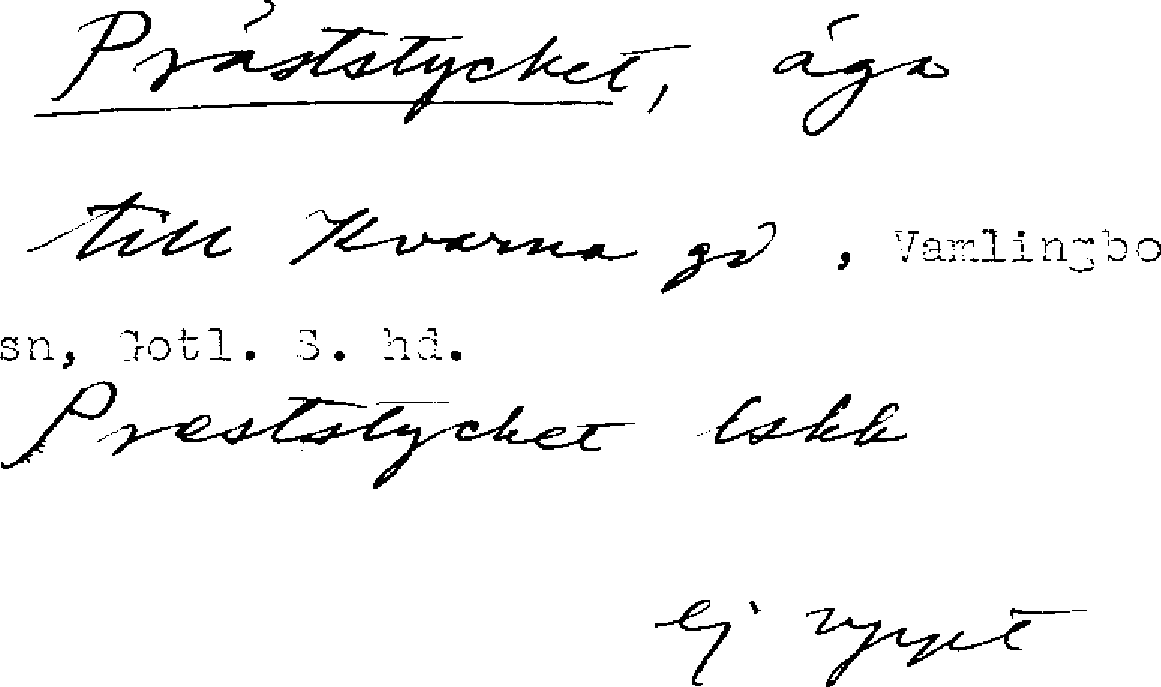 Präststycket, äga
till Kvarna gd, Vamlingbo
sn, Gotl. S. hd.
Preststycket lskk
ej uppt